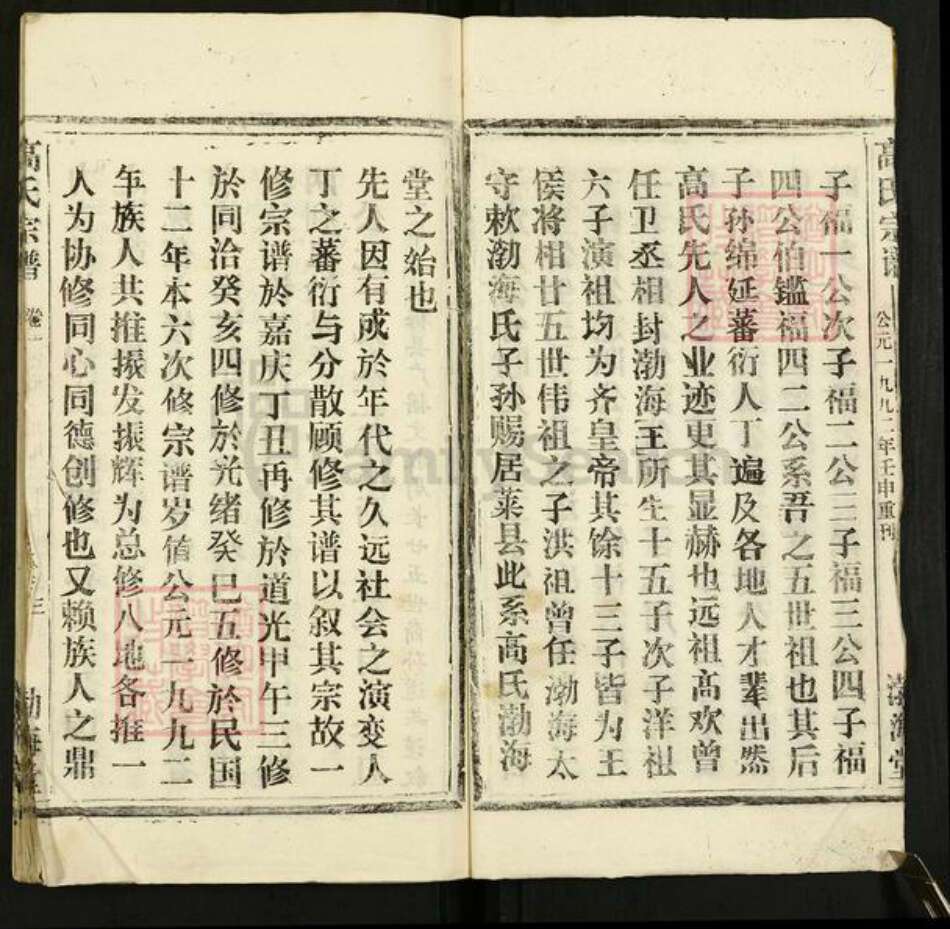 高氏宗谱
公元一九九二年壬申重刊
渤海堂
子福一公次子福二公三子福三公四子福
四公伯鑑福四二公系吾之五世祖也其后
子孙绵延蕃衍人丁遍及各地人才辈出然
高氏先人之业迹更其显赫也远祖高欢曾
任卫丞相封渤海王所生十五子次子洋祖
六子演祖均为齐皇帝其馀十三子皆为王
侯将相廿五世伟祖之子洪祖曾任渤海太
守敕渤海氏子孙赐居莱县此系高氏渤海
堂之始也
先人因有感於年代之久远社会之演变人
丁之蕃衍与分散顾修其谱以叙其宗故一
修宗谱於嘉庆丁丑再修於道光甲午三修
於同治癸亥四修於光绪癸巳五修於民国
十二年本六次修宗谱岁值公元一九九二
年族人共推振发振辉为总修八地各推一
人为协修同心同德创修也又赖族人之鼎
高氏宗谱
卷一
三
渤海堂